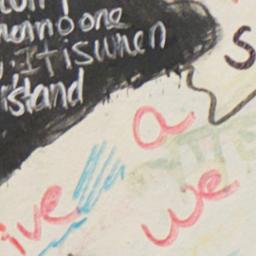 no one
. It is when
island
S
a
ive
we